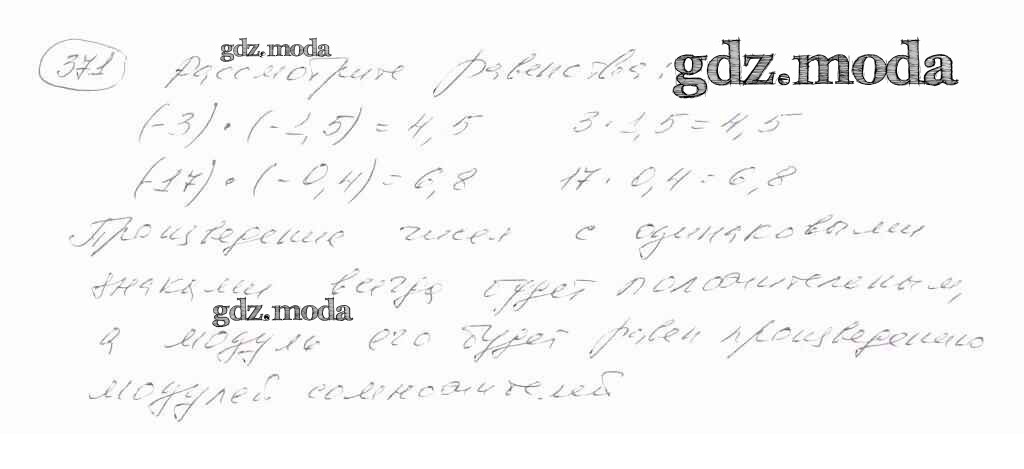 371 Рассмотрите равенства:
gdz.moda
gdz.moda
(-3) · (-1,5) = 4,5   3 · 1,5 = 4,5
(-17) · (-0,4) = 6,8   17 · 0,4 = 6,8
Произведение чисел с одинаковыми
знаками всегда будет положительным,
gdz.moda
а модуль его будет равен произведению
модулей сомножителей